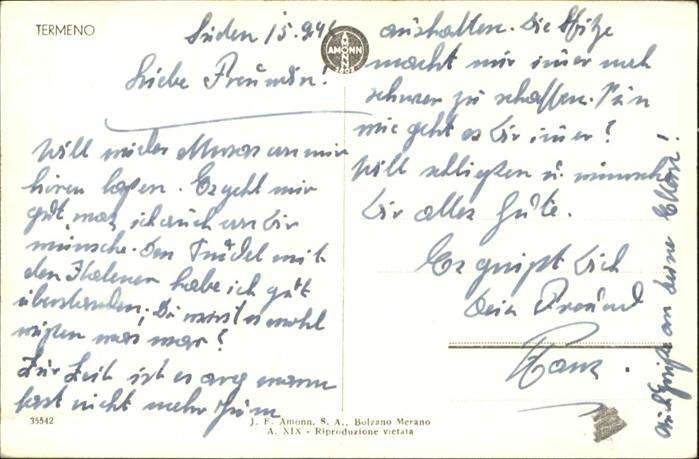 TERMENO
Süden 15.9.41
Liebe Freundin!
Will wieder etwas von mir
hören lassen. Es geht mir
gut was ich auch von Dir
wünsche. Den Trubel mit
den Italiener habe ich gut
überstanden. Du wirst es wohl
wissen was war?
Zur Zeit ist es arg warm
fast nicht mehr zum
aushalten. Die Hitze
macht mir immer noch
schwer zu schaffen. Nun
wie geht es Dir immer?
Will schließen u. wünsche
Dir alles Gute.
Es grüßt Dich
Dein Freund
Hans.
Auch Grüße an deine Eltern!
AMONN
35542
J. F. Amonn, S. A., Bolzano Merano
A. XIX - Riproduzione vietata